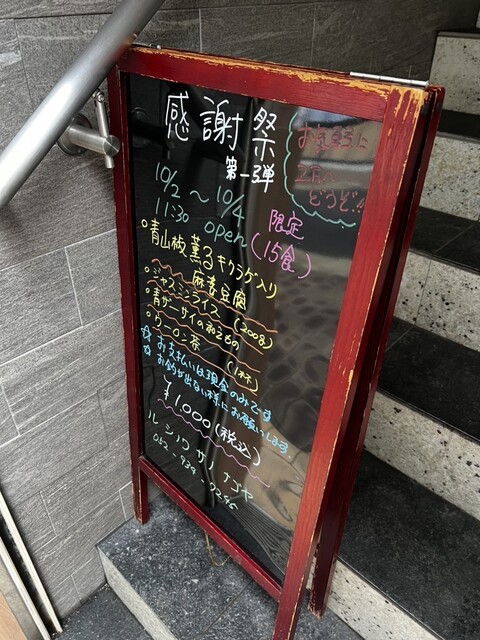 感謝祭
第一弾
お気軽に
2階へ
どうぞ!!
10/2 ～ 10/4
11:30 open
限定
(15食)
○青山椒薫るキクラゲ入り
麻婆豆腐
○ジャスミンライス (200g)
○青ザーサイの和えもの
○ウーロン茶 (1杯)
☆お支払いは現金のみです
☆お釣が出ない様にお願いします。
¥1,000(税込)
ルシノワ サノ ナゴヤ
052-939-0246